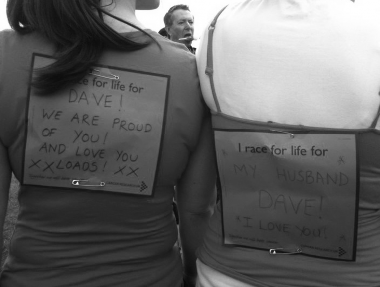 e for life for
DAVE!
WE ARE PROUD
OF YOU!
AND LOVE YOU
XX LOADS! XX
I race for life for
MY HUSBAND
DAVE!
I LOVE YOU!